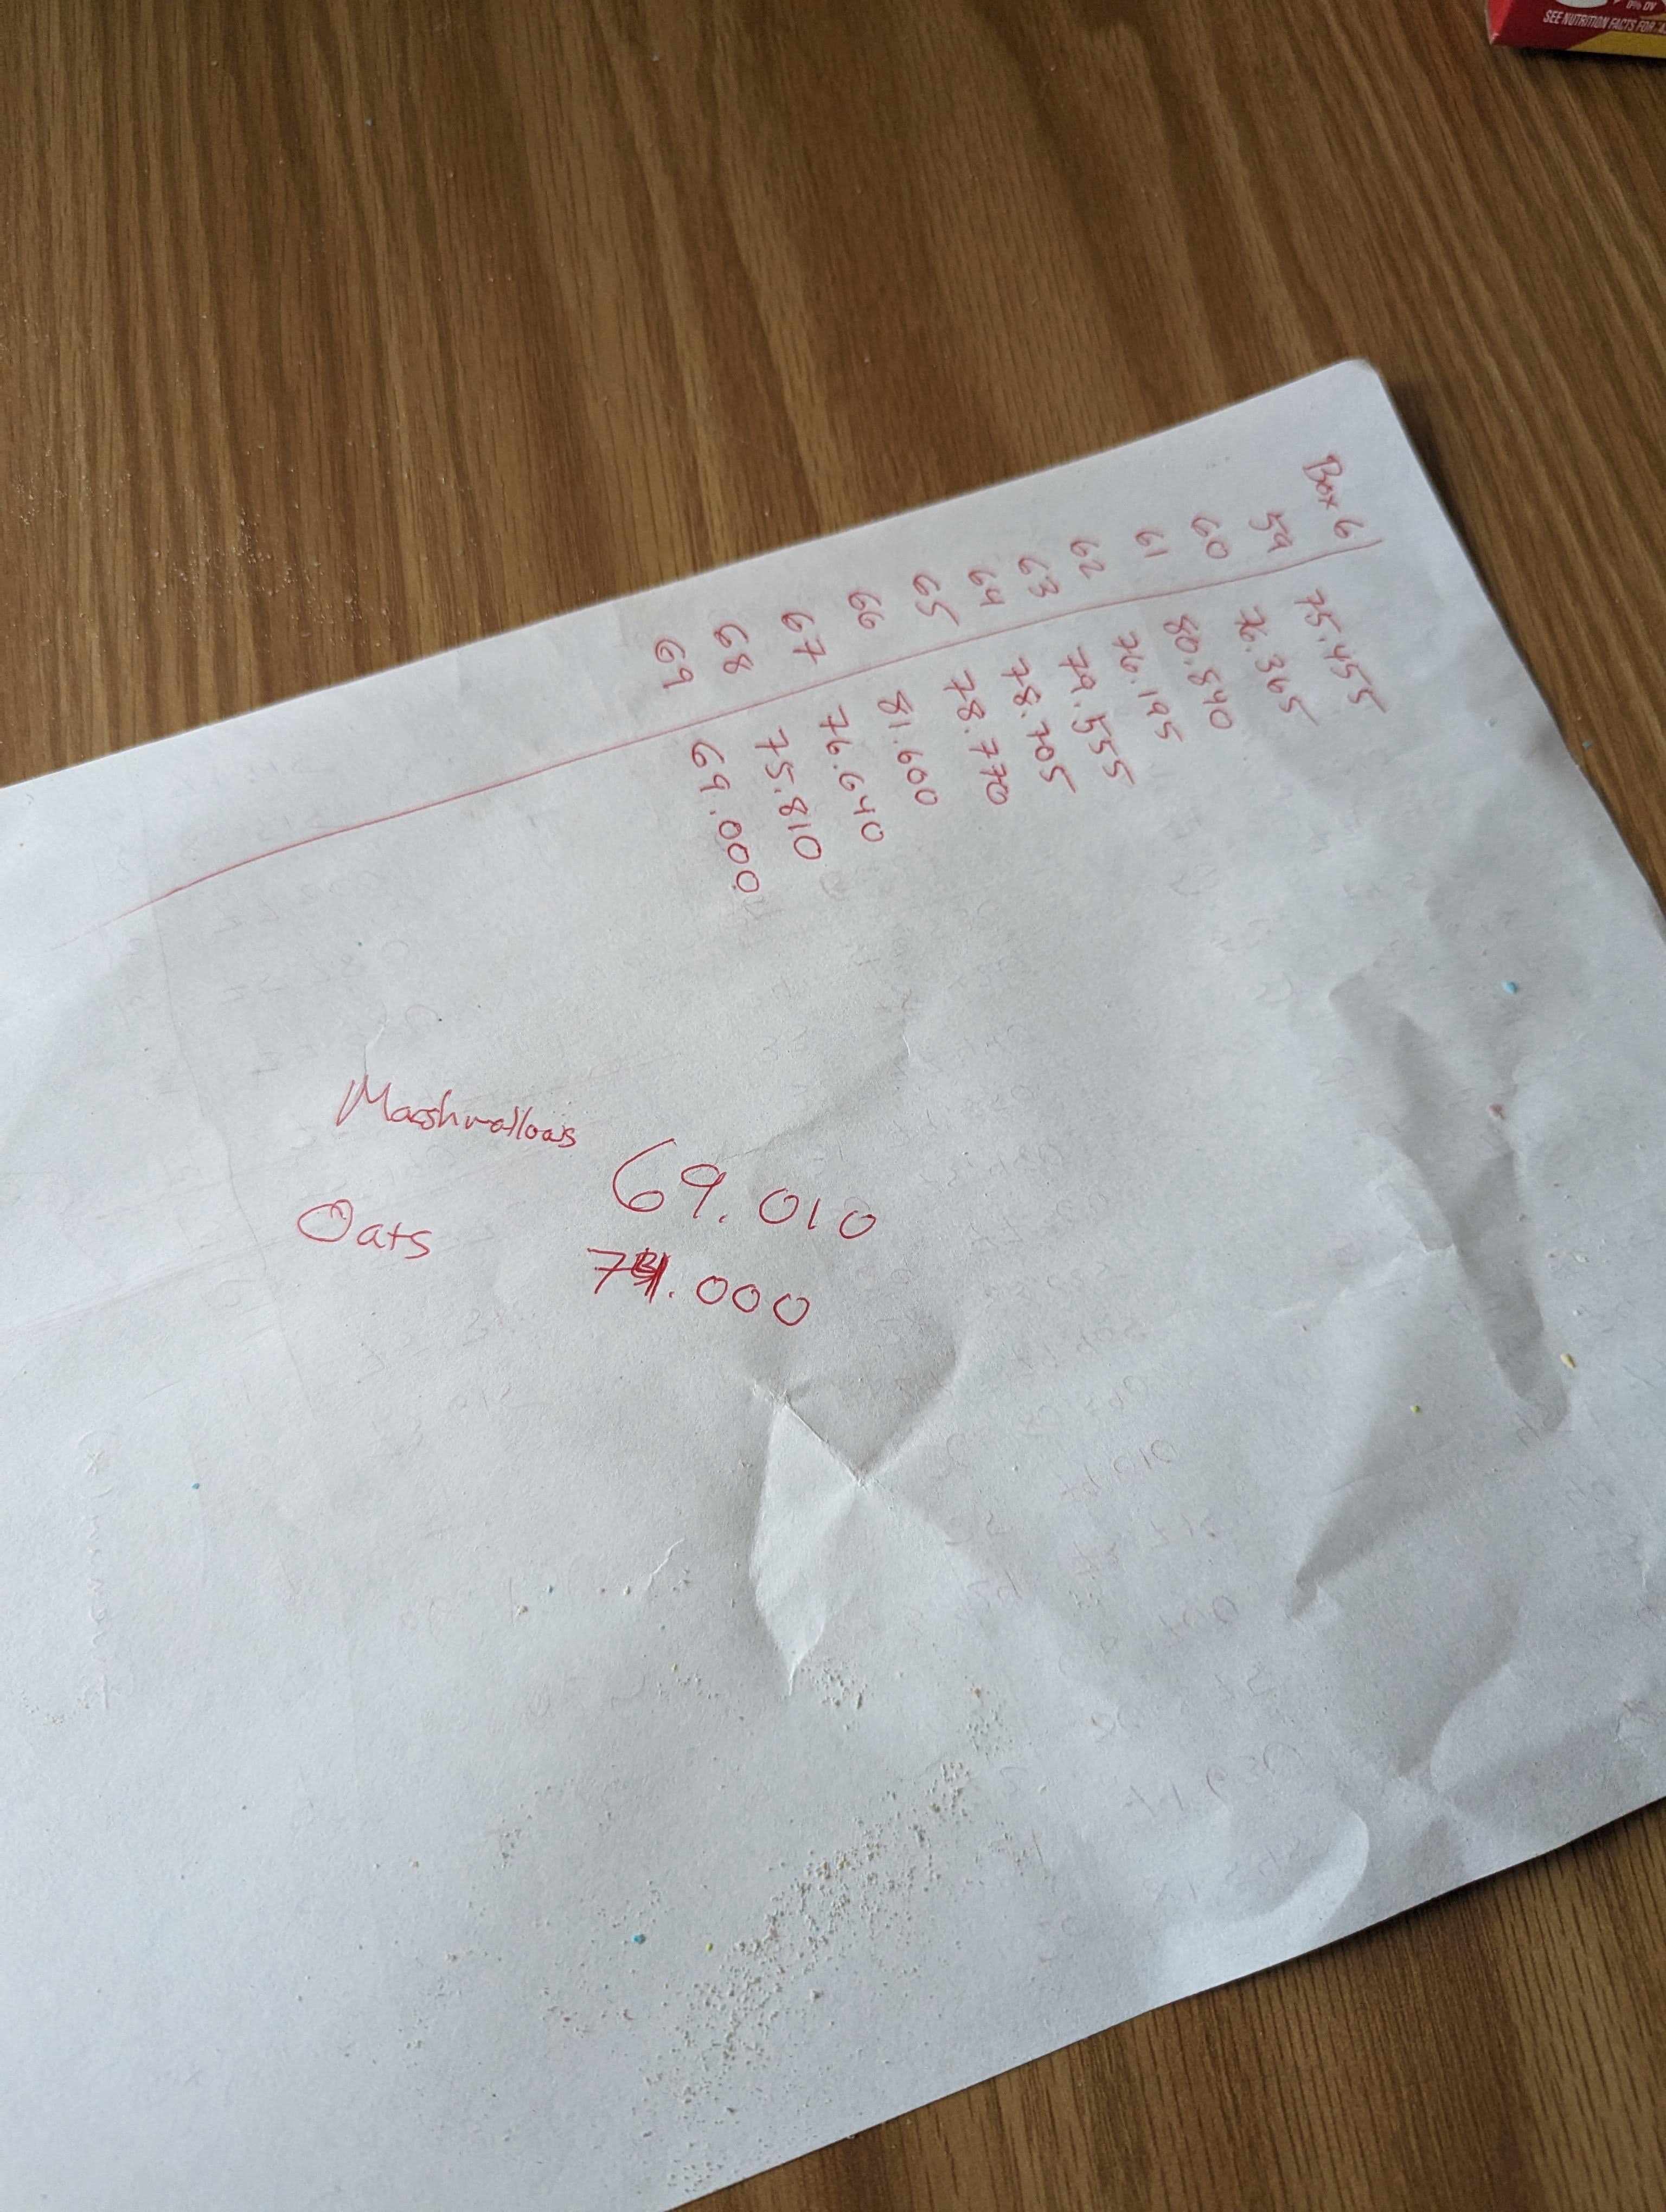 0% DV
SEE NUTRITION FACTS FOR
Box 6
59 75.455
60 76.365
61 80.840
62 76.195
63 79.555
64 78.705
65 78.770
66 81.600
67 76.640
68 75.810
69 69.000
Marshmallows 69.010
Oats